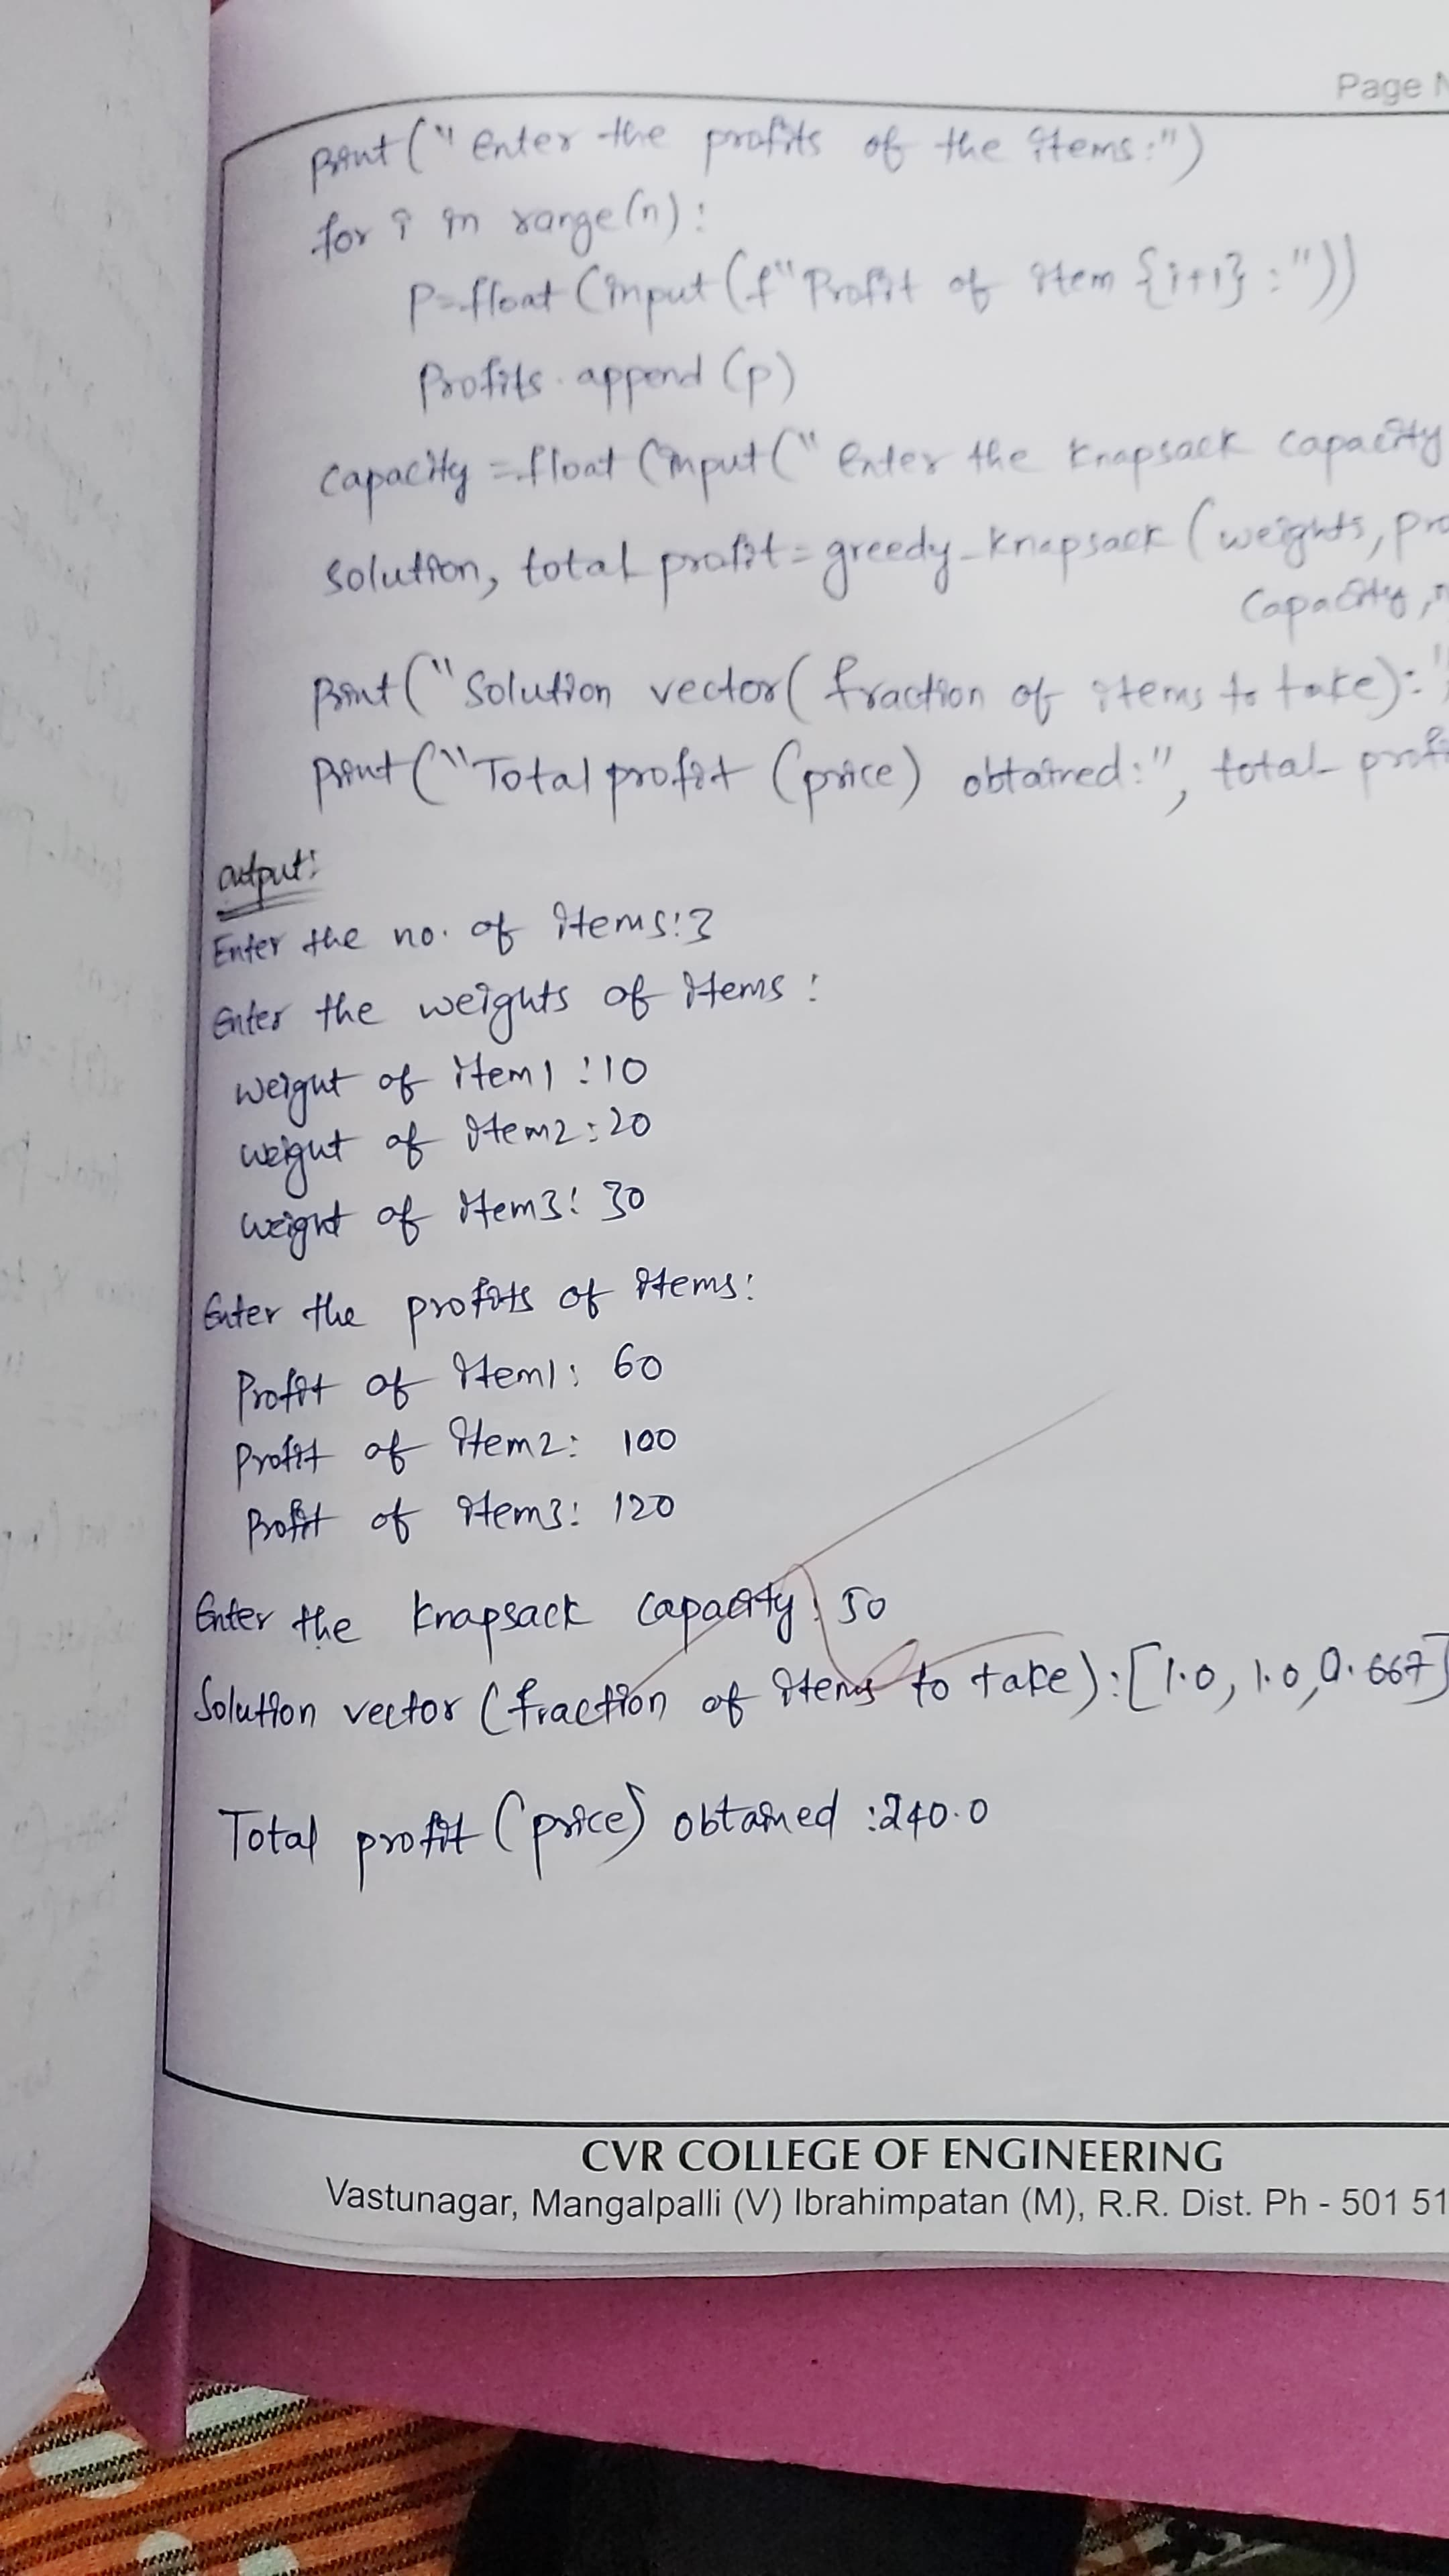 Page
print("enter the profits of the items:")
for i in range(n):
p=float(input(f"Profit of item {i+1}:"))
Profits.append(p)
capacity=float(input("enter the knapsack capacity
solution, total profit=greedy_knapsack(weights,
capacity,
print("Solution vector(fraction of items to take):"
print("Total profit (price) obtained:", total
output:
Enter the no. of items:3
Enter the weights of items:
weight of item1:10
weight of item2:20
weight of item3:30
Enter the profits of items:
Profit of item1: 60
Profit of item2: 100
Profit of item3: 120
Enter the knapsack capacity: 50
Solution vector (fraction of items to take):[1.0, 1.0, 0.667]
Total profit (price) obtained:240.0
CVR COLLEGE OF ENGINEERING
Vastunagar, Mangalpalli (V) Ibrahimpatan (M), R.R. Dist. Ph - 501 51